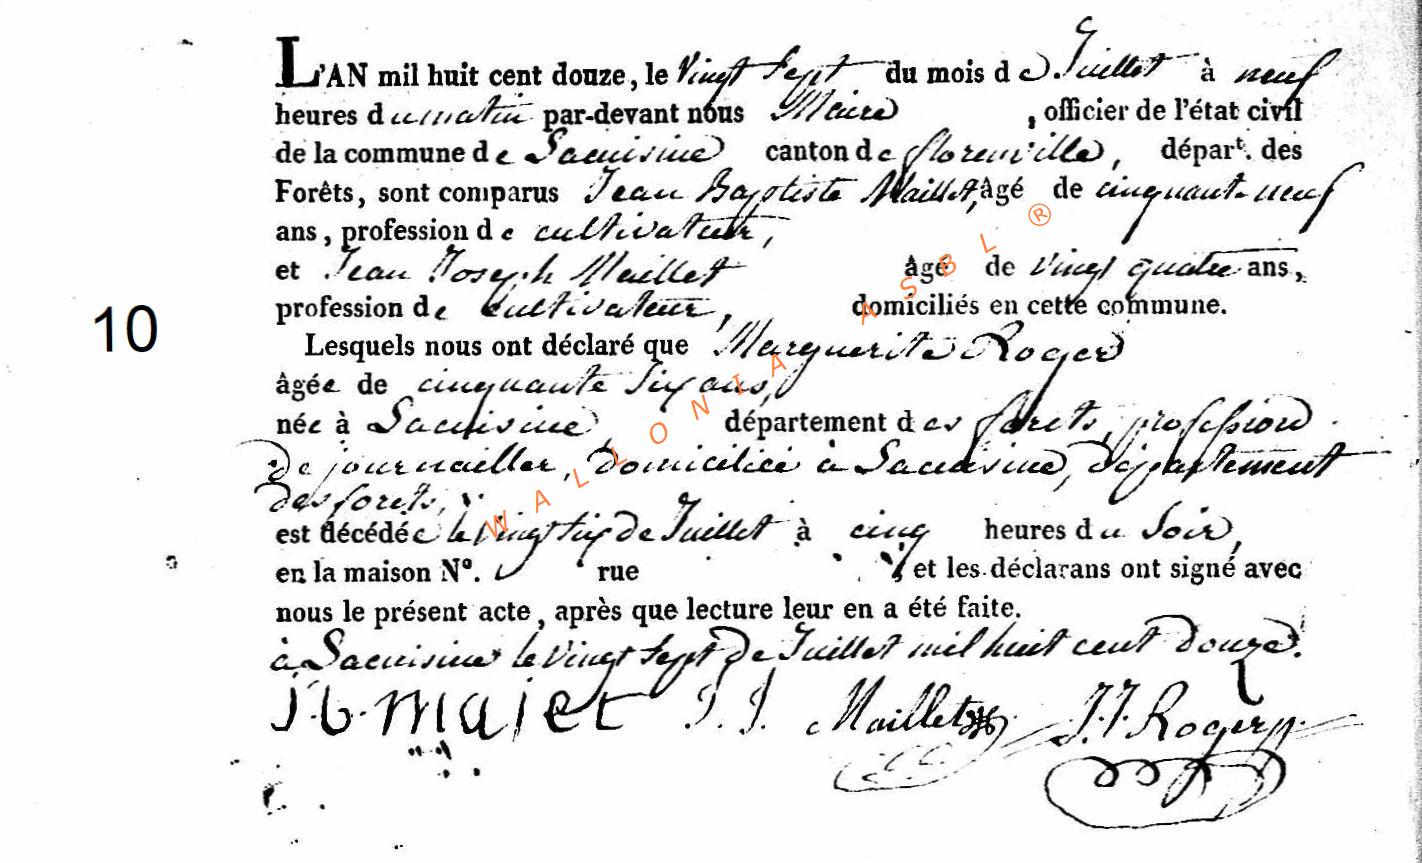 L'AN mil huit cent douze, le vingt sept du mois de Juillet à neuf
heures du matin par-devant nous Maire, officier de l'état civil
de la commune de Lacuisine canton de florenville, départ. des
Forêts, sont comparus Jean Baptiste Maillet, âgé de cinquante neuf
ans, profession de cultivateur,
et Jean Joseph Maillet âgé de vingt quatre ans,
profession de cultivateur, domiciliés en cette commune.
10
Lesquels nous ont déclaré que Marguerite Roger
âgée de cinquante six ans,
née à Lacuisine, département des forets, profession
de journailler, domiciliée à Lacuisine, département
des forets,
est décédée le vingt six de Juillet à cinq heures du soir,
en la maison Nº. rue, et les déclarans ont signé avec
nous le présent acte, après que lecture leur en a été faite.
à Lacuisine le vingt sept de Juillet mil huit cent douze.
J. b. majet J. J. Maillet J. J. Roger
WALLONIA ASBL ®